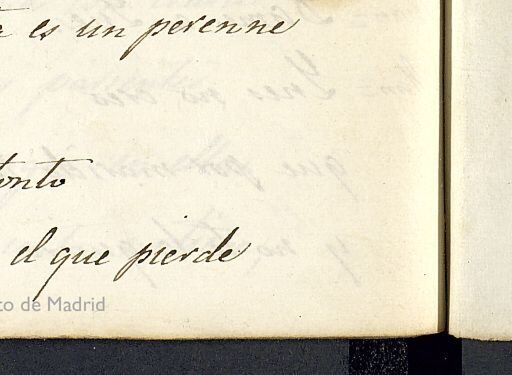 es un perenne
tonto
el que pierde
to de Madrid